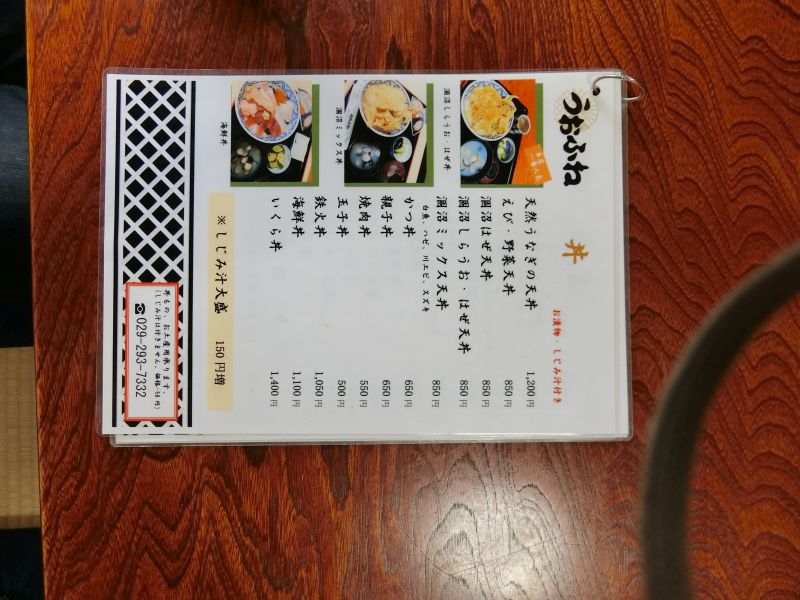 うおふね
丼
お漬物・しじみ汁付き
天然うなぎの天丼 1,200円
えび・野菜天丼 850円
涸沼はぜ天丼 850円
涸沼しらうお・はぜ天丼 850円
涸沼ミックス天丼 850円
白魚、ハゼ、川エビ、スズキ
かつ丼 650円
親子丼 650円
焼肉丼 550円
玉子丼 500円
鉄火丼 1,050円
海鮮丼 1,100円
いくら丼 1,400円
※しじみ汁大盛 150円増
涸沼しらうお・はぜ丼
涸沼ミックス丼
海鮮丼
丼もの、お土産用承ります。
(しじみ汁は付きません。価格-50円)
☎029-293-7332